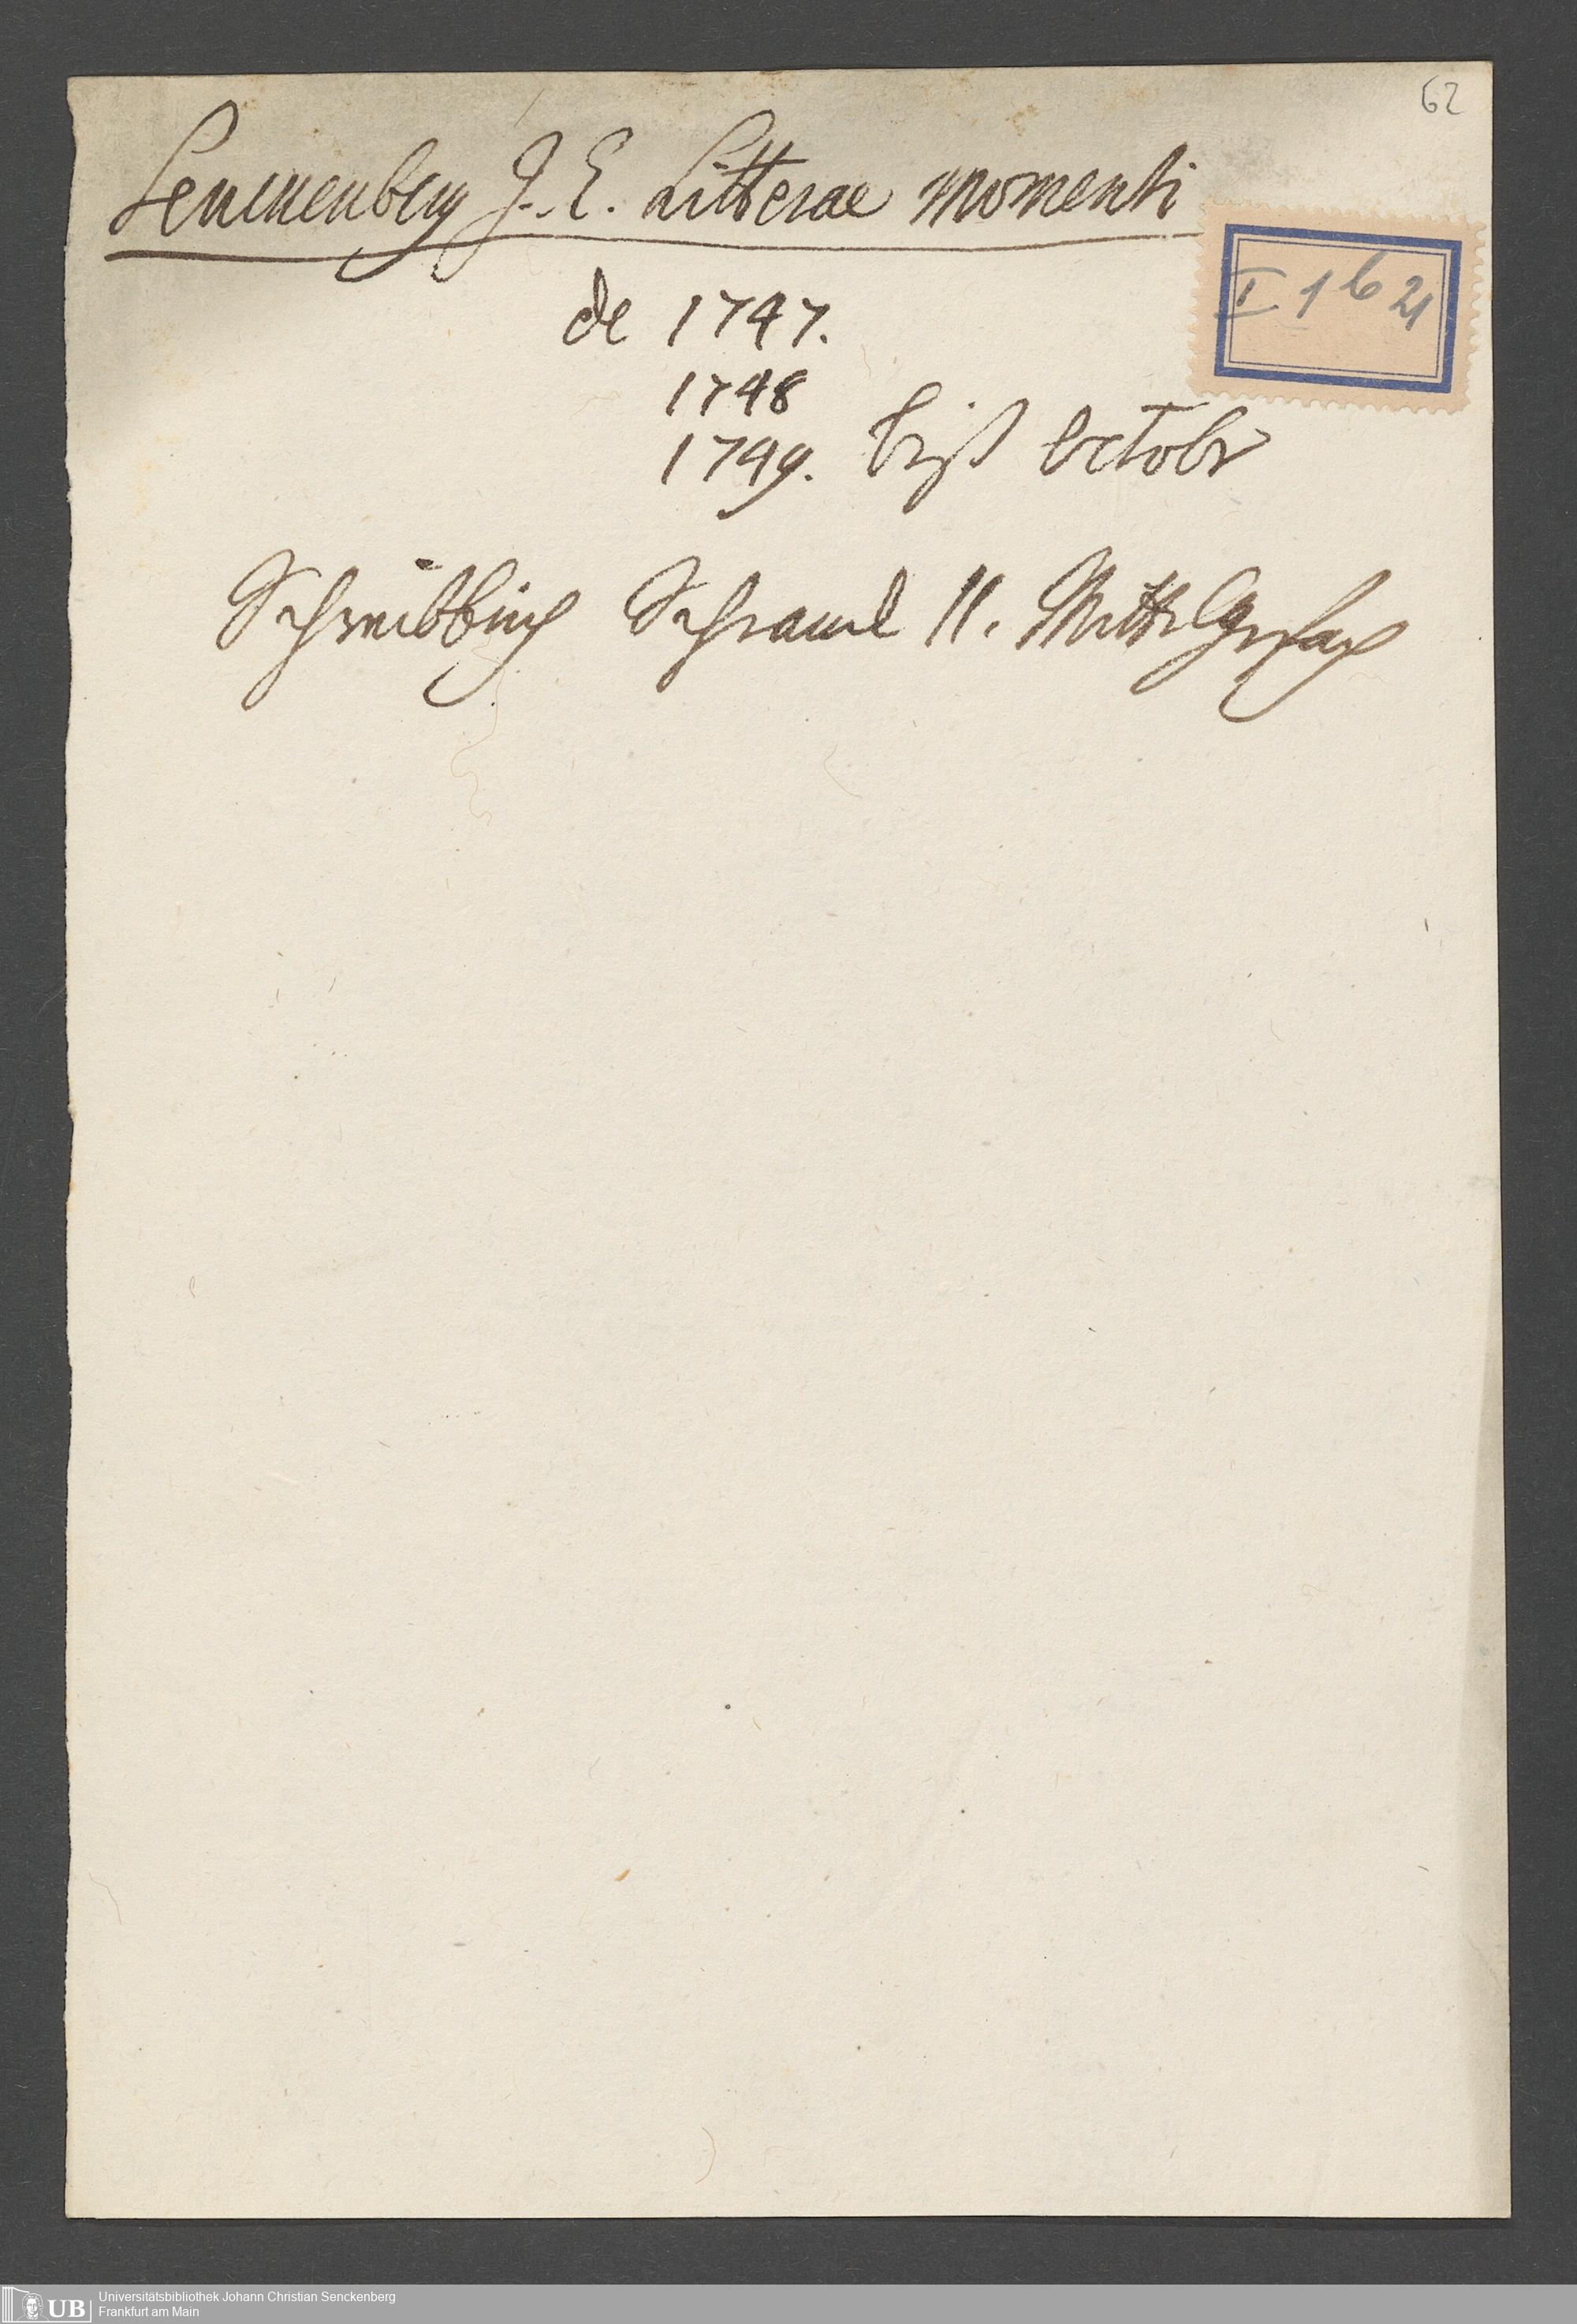 62
Senckenberg J. E. Litterae momenti
I 1 b 21
de 1747.
1748
1749. biß Octobr
Schreibbuch Schranck II. Mittelgefach
UB Universitätsbibliothek Johann Christian Senckenberg
Frankfurt am Main